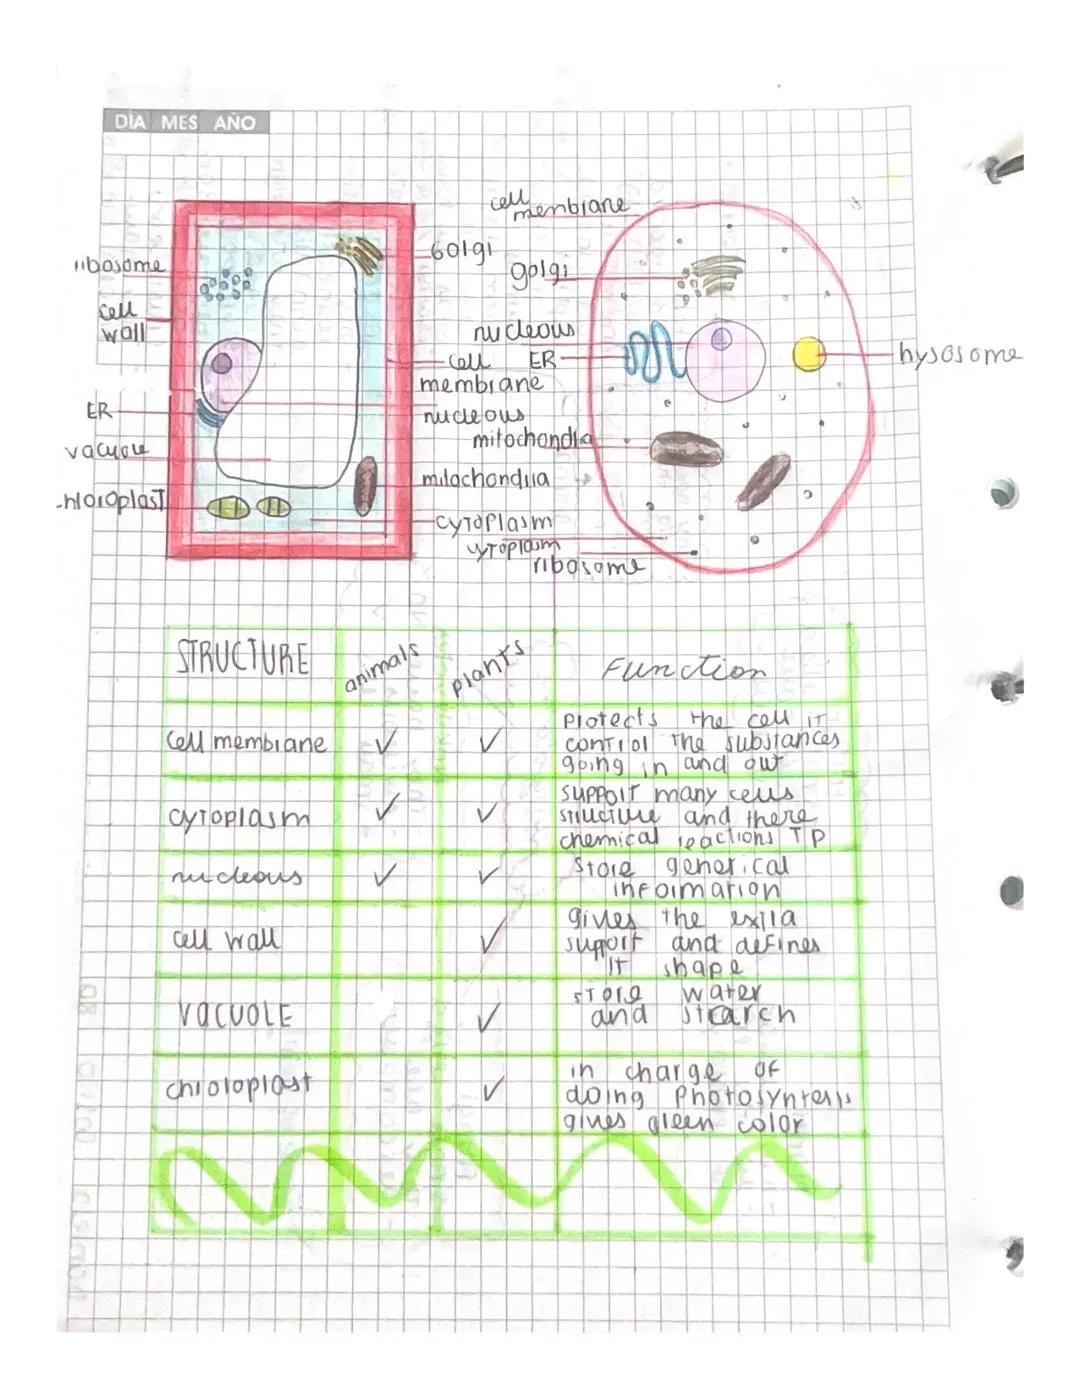 DÍA MES AÑO
ribosome
cell
wall
ER
vacuole
hloroplast
Golgi
cell
membrane
nucleous
mitochondria
cytoplasm
cell
membrane
golgi
nucleous
ER
mitochondria
cytoplasm
ribosome
lysosome
STRUCTURE animals plants Function
cell membrane ✓ ✓
protects the cell it
control the substances
going in and out
cytoplasm ✓ ✓
support many cells
structure and there
chemical reactions TP
nucleous ✓ ✓
store generical
information
cell wall ✓
gives the extra
support and defines
it shape
VACUOLE ✓
store water
and starch
chloroplast ✓
in charge of
doing photosyntesis
gives green color